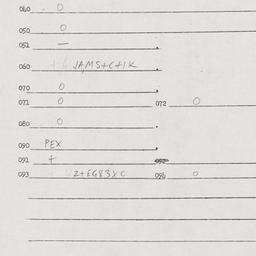 040 0
050 0
052 —
060 + JAMS+C+1K
070 0
071 0 072 0
080 0
090 PEX
091 +
093 2+EG83YC 096 0